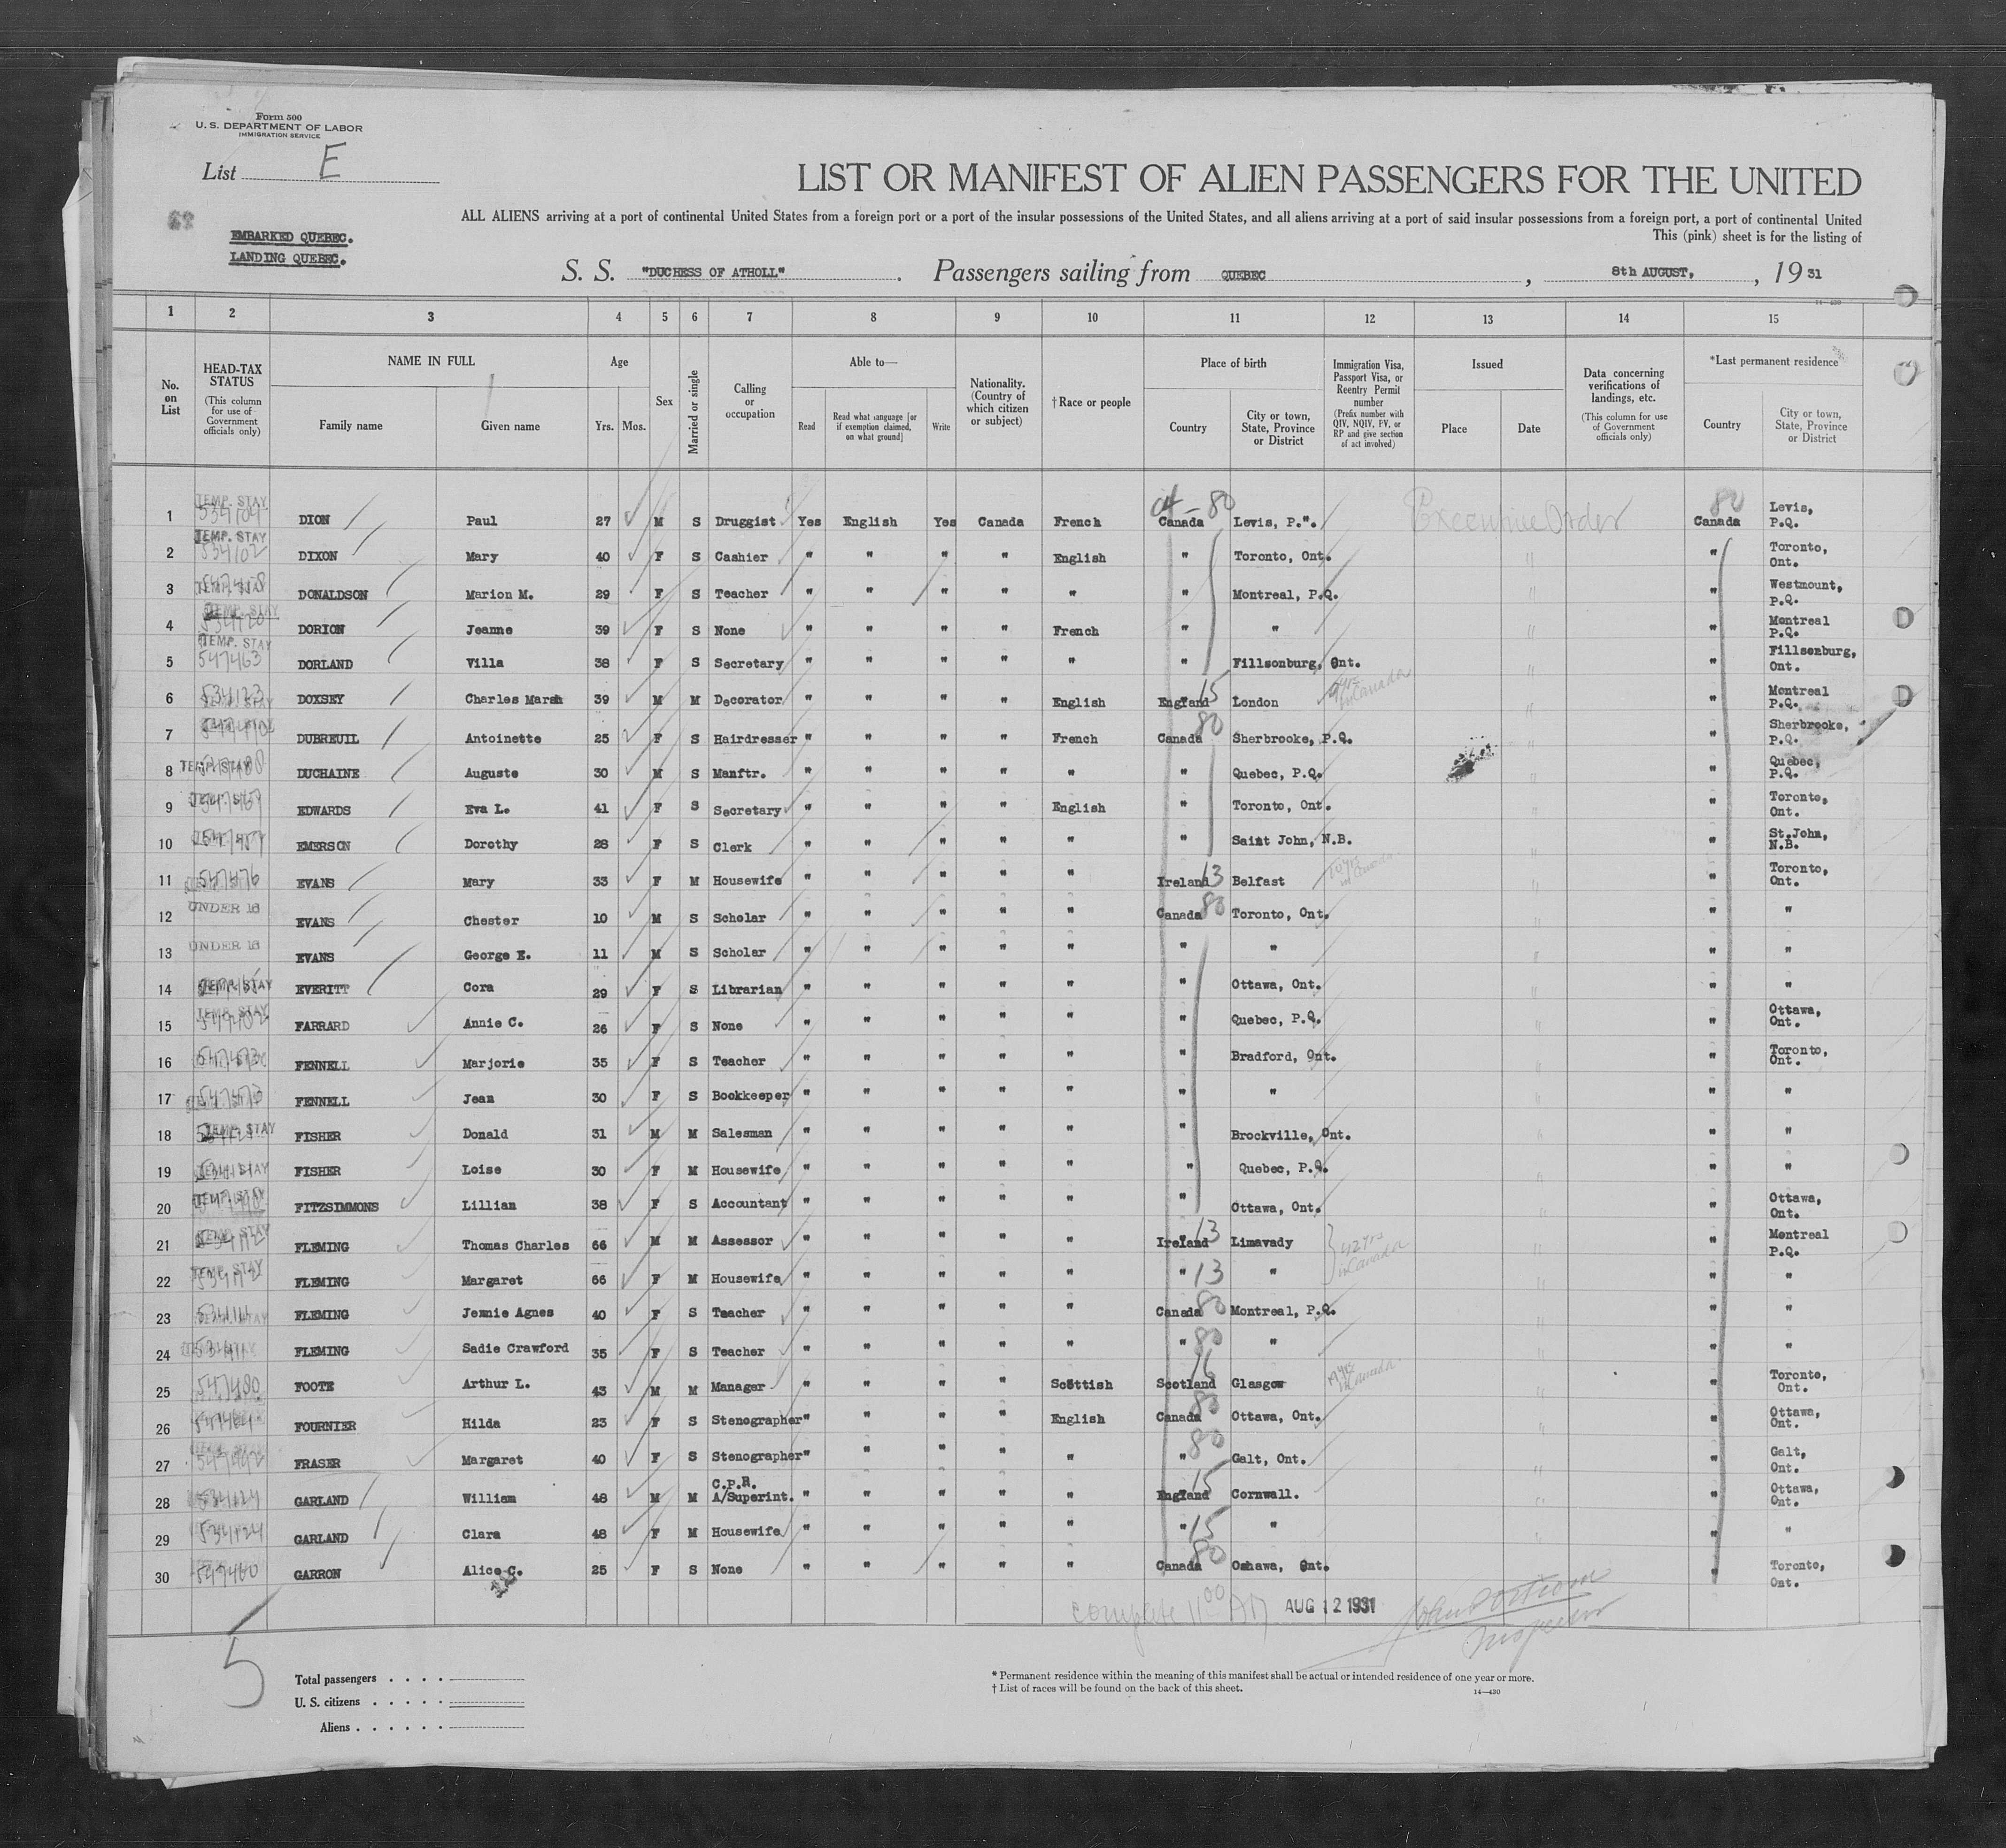 Form 500
U. S. DEPARTMENT OF LABOR
IMMIGRATION SERVICE
List E
LIST OR MANIFEST OF ALIEN PASSENGERS FOR THE UNITED
ALL ALIENS arriving at a port of continental United States from a foreign port or a port of the insular possessions of the United States, and all aliens arriving at a port of said insular possessions from a foreign port, a port of continental United
This (pink) sheet is for the listing of
EMBARKED QUEBEC.
LANDING QUEBEC.
S. S. "DUCHESS OF ATHOLL" . Passengers sailing from QUEBEC , 8th AUGUST, , 19 31
14—430
1 2 3 4 5 6 7 8 9 10 11 12 13 14 15
No. on List
HEAD-TAX STATUS (This column for use of Government officials only)
NAME IN FULL Family name Given name
Age Yrs. Mos.
Sex
Married or single
Calling or occupation
Able to— Read Read what language [or if exemption claimed, on what ground] Write
Nationality. (Country of which citizen or subject)
† Race or people
Place of birth Country City or town, State, Province or District
Immigration Visa, Passport Visa, or Reentry Permit number (Prefix number with QIV, NQIV, PV, or RP and give section of act involved)
Issued Place Date
Data concerning verifications of landings, etc. (This column for use of Government officials only)
*Last permanent residence Country City or town, State, Province or District
1 TEMP. STAY DION Paul 27 M S Druggist Yes English Yes Canada French Canada 80 Levis, P.". Executive Order 80 Canada Levis, P.Q.
2 TEMP. STAY 534102 DIXON Mary 40 F S Cashier " " " " English " Toronto, Ont. " " Toronto, Ont.
3 DONALDSON Marion M. 29 F S Teacher " " " " " " Montreal, P.Q. " " Westmount, P.Q.
4 TEMP. STAY DORION Jeanne 39 F S None " " " " French " " " " Montreal P.Q.
5 TEMP. STAY 547463 DORLAND Villa 38 F S Secretary " " " " " " Fillsonburg, Ont. " " Fillsonburg, Ont.
6 534123 DOXSEY Charles Marsh 39 M M Decorator " " " " English England 15 London 9 yrs in Canada " " Montreal P.Q.
7 DUBREUIL Antoinette 25 F S Hairdresser " " " " French Canada 80 Sherbrooke, P.Q. " " Sherbrooke, P.Q.
8 TEMP. STAY DUCHAINE Auguste 30 M S Manftr. " " " " " " Quebec, P.Q. " Quebec, P.Q.
9 EDWARDS Eva L. 41 F S Secretary " " " " English " Toronto, Ont. " " Toronto, Ont.
10 EMERSON Dorothy 28 F S Clerk " " " " " " Saint John, N.B. " " St.John, N.B.
11 547476 EVANS Mary 33 F M Housewife " " " " " Ireland 13 Belfast in Canada " " Toronto, Ont.
12 UNDER 16 EVANS Chester 10 M S Scholar " " " " " Canada 80 Toronto, Ont. " " "
13 UNDER 16 EVANS George E. 11 M S Scholar " " " " " " " " " "
14 TEMP. STAY EVERITT Cora 29 F S Librarian " " " " " " Ottawa, Ont. " " "
15 TEMP. STAY FARRARD Annie C. 26 F S None " " " " " " Quebec, P.Q. " " Ottawa, Ont.
16 FENNELL Marjorie 35 F S Teacher " " " " " " Bradford, Ont. " " Toronto, Ont.
17 547473 FENNELL Jean 30 F S Bookkeeper " " " " " " " " " "
18 TEMP. STAY FISHER Donald 31 M M Salesman " " " " " " Brockville, Ont. " " "
19 FISHER Loise 30 F M Housewife " " " " " " Quebec, P.Q. " " "
20 TEMP. STAY FITZSIMMONS Lillian 38 F S Accountant " " " " " " Ottawa, Ont. " " Ottawa, Ont.
21 TEMP. STAY FLEMING Thomas Charles 66 M M Assessor " " " " " Ireland 13 Limavady 42 yrs in Canada " " Montreal P.Q.
22 TEMP. STAY FLEMING Margaret 66 F M Housewife " " " " " " 13 " " " "
23 FLEMING Jennie Agnes 40 F S Teacher " " " " " Canada 80 Montreal, P.Q. " " "
24 FLEMING Sadie Crawford 35 F S Teacher " " " " " " 80 " " " "
25 547480 FOOTE Arthur L. 43 M M Manager " " " " Scottish Scotland 16 Glasgow in Canada " " Toronto, Ont.
26 FOURNIER Hilda 23 F S Stenographer " " " " English Canada 80 Ottawa, Ont. " Ottawa, Ont.
27 FRASER Margaret 40 F S Stenographer " " " " " " 80 Galt, Ont. " " Galt, Ont.
28 534124 GARLAND William 48 M M C.P.R. A/Superint. " " " " " England 15 Cornwall. " " Ottawa, Ont.
29 534124 GARLAND Clara 48 F M Housewife " " " " " " 15 " " " "
30 547460 GARRON Alice C. 25 F S None " " " " " Canada 80 Oshawa, Ont. " Toronto, Ont.
Complete 11 00 AM AUG 12 1931
Inspector
5
Total passengers . . . .
U. S. citizens . . . . .
Aliens . . . . . .
* Permanent residence within the meaning of this manifest shall be actual or intended residence of one year or more.
† List of races will be found on the back of this sheet.
14—430